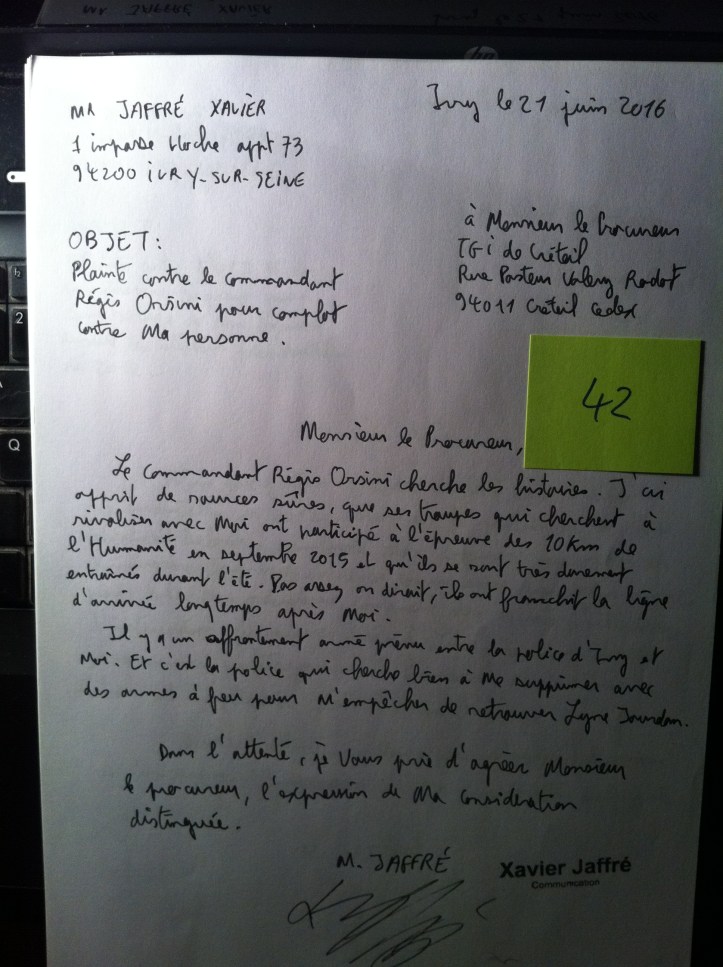 MR JAFFRÉ XAVIER
1 impasse appt 73
94200 IVRY-SUR-SEINE
Ivry le 21 juin 2016
à Monsieur le Procureur
TGI de Créteil
Rue Pasteur Valery Radot
94011 Créteil Cedex
OBJET:
Plainte contre le commandant
Régis Orsini pour complot
contre Ma personne.
42
Monsieur le Procureur,
Le Commandant Régis Orsini cherche les histoires. J'ai
apprit de sources sûres, que ses troupes qui cherchent à
rivaliser avec Moi ont participé à l'épreuve des 10Km de
l'Humanité en septembre 2015 et qu'ils se sont très durement
entraînés durant l'été. Pas assez on dirait, ils ont franchit la ligne
d'arrivée longtemps après Moi.
Il y a un affrontement armé prévu entre la police d'Ivry et
Moi. Et c'est la police qui cherche bien à Me supprimer avec
des armes à feu pour M'empêcher de retrouver Lyne Jourdan.
Dans l'attente, je Vous prie d'agréer Monsieur
le procureur, l'expression de Ma Considération
distinguée.
M. JAFFRÉ
Xavier Jaffré
Communication
hp
2
Q